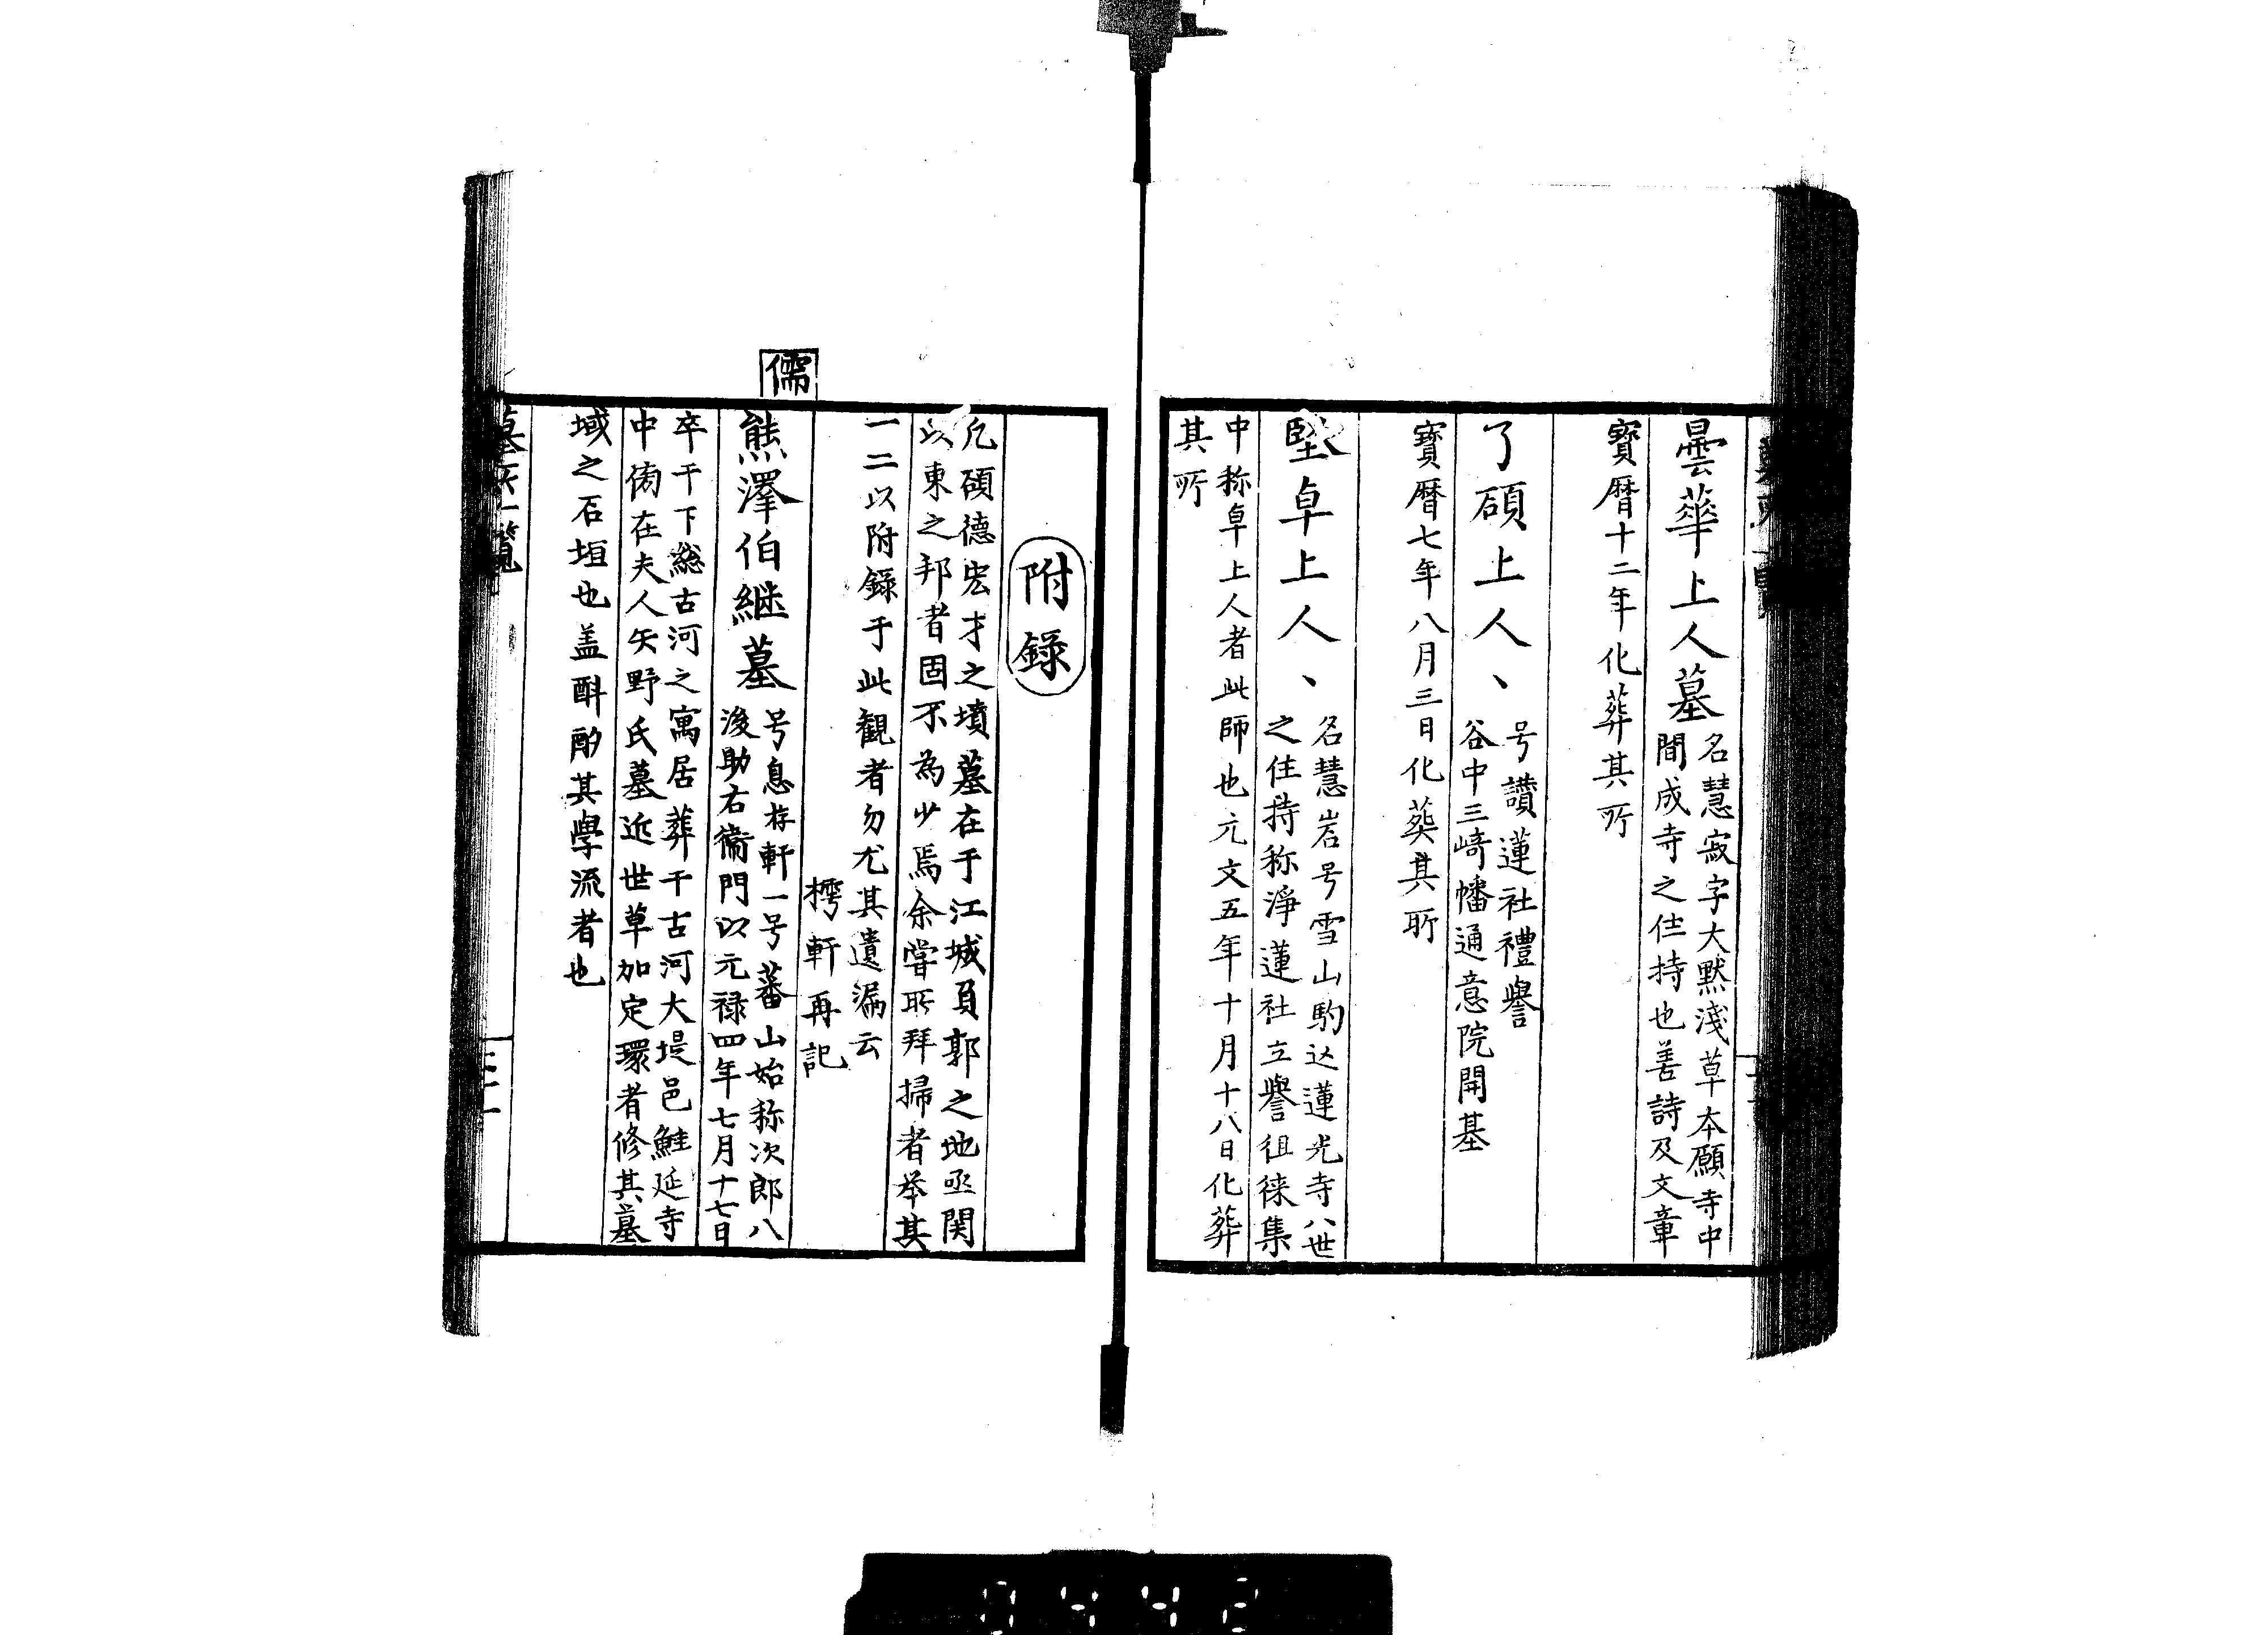 曇華上人墓
名慧寂字大黙淺草本願寺中
間成寺之住持也善詩及文章
寶曆十二年化葬其所
了碩上人、
号讃蓮社禮譽
谷中三﨑幡通意院開基
寶曆七年八月三日化葬其所
堅卓上人、
名慧岩号雪山駒込蓮光寺八世
之住持称淨蓮社立譽徂徠集
中称卓上人者此師也元文五年十月十八日化葬
其所
附錄
凢碩德宏才之墳墓在于江城負郭之地亟関
以東之邦者固不為少焉余嘗所拜掃者举其
一二以附錄于此観者勿尤其遺漏云
樗軒再記
儒
熊澤伯継墓
号息存軒一号蕃山始称次郎八
後助右衞門以元禄四年七月十七日
卒于下総古河之寓居葬于古河大堤邑鮭延寺
中側在夫人矢野氏墓近世草加定環者修其墓
域之石垣也盖斟酌其學流者也
墓所一覧
三十二